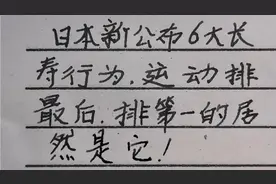 日本新公布6大长
寿行为,运动排
最后,排第一的居
然是它!